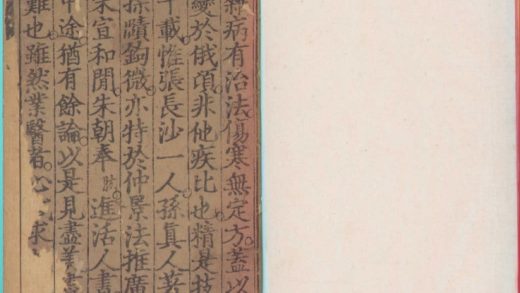 病有治法。傷寒無定方。蓋以
變於俄頃。非他疾比也。精是技
千載惟張長沙一人。孫眞人著
探賾鉤微。亦特於仲景法推廣
宋宣和閒。朱朝奉肱進活人書
中途猶有餘論。以是見盡
難也。雖然業醫者。心求